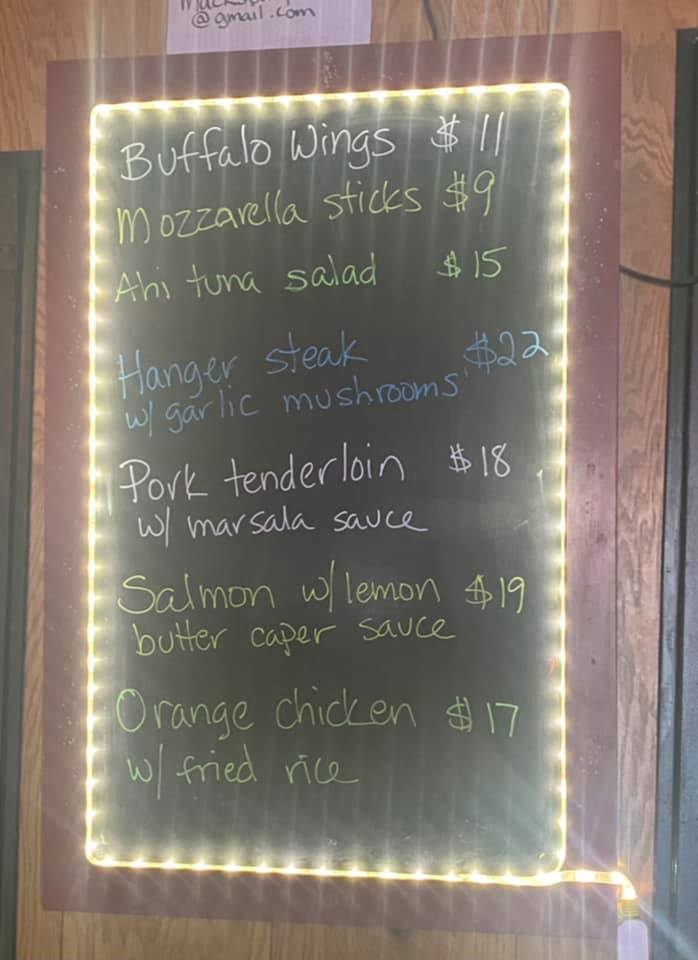 @gmail.com
Buffalo Wings $11
Mozzarella sticks $9
Ahi tuna salad $15
Hanger steak $22
w/ garlic mushrooms
Pork tenderloin $18
w/ marsala sauce
Salmon w/ lemon $19
butter caper sauce
Orange chicken $17
w/ fried rice